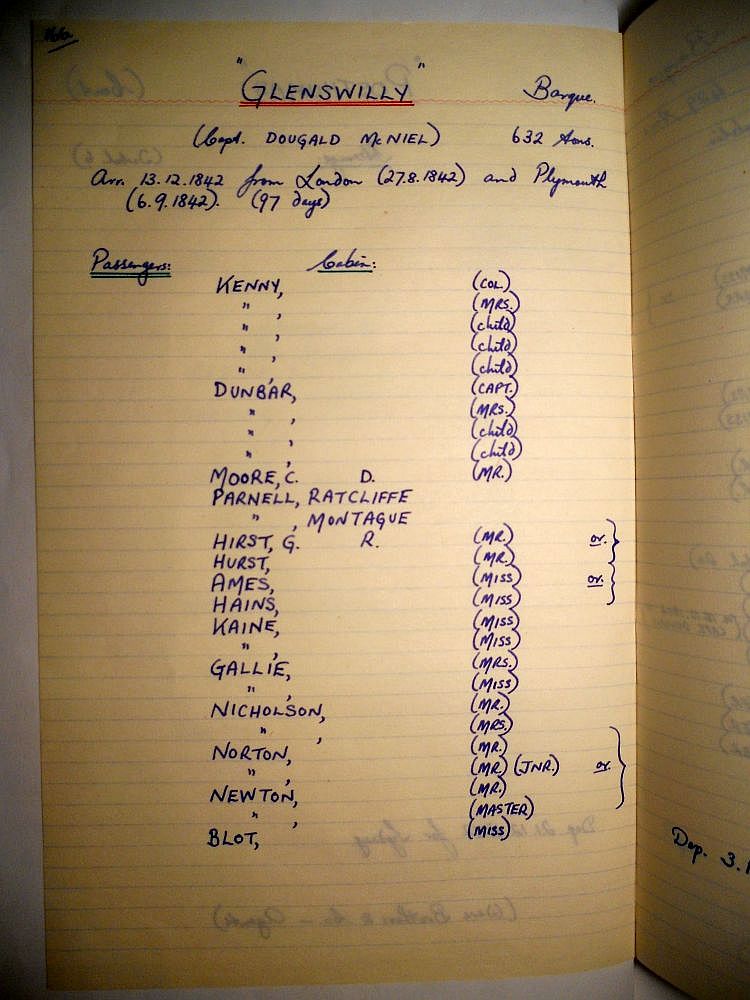 "GLENSWILLY" Barque.
(Capt. DOUGALD McNIEL) 632 tons.
Arr. 13.12.1842 from London (27.8.1842) and Plymouth
(6.9.1842). (97 days)
Passengers: Cabin:
KENNY, (COL.)
" , (MRS.)
" , (child)
" , (child)
" , (child)
DUNBAR, (CAPT.)
" , (MRS.)
" , (child)
" , (child)
MOORE, C. D. (MR.)
PARNELL, RATCLIFFE
" , MONTAGUE
HIRST, G. R. (MR.) or.
HURST, (MR.)
AMES, (MISS) or.
HAINS, (MISS)
KAINE, (MISS)
" , (MISS)
GALLIE, (MRS.)
" , (MISS)
NICHOLSON, (MR.)
" , (MRS.)
NORTON, (MR.)
" , (MR.) (JNR.) or.
NEWTON, (MR.)
" , (MASTER)
BLOT, (MISS)
Dep. 3.